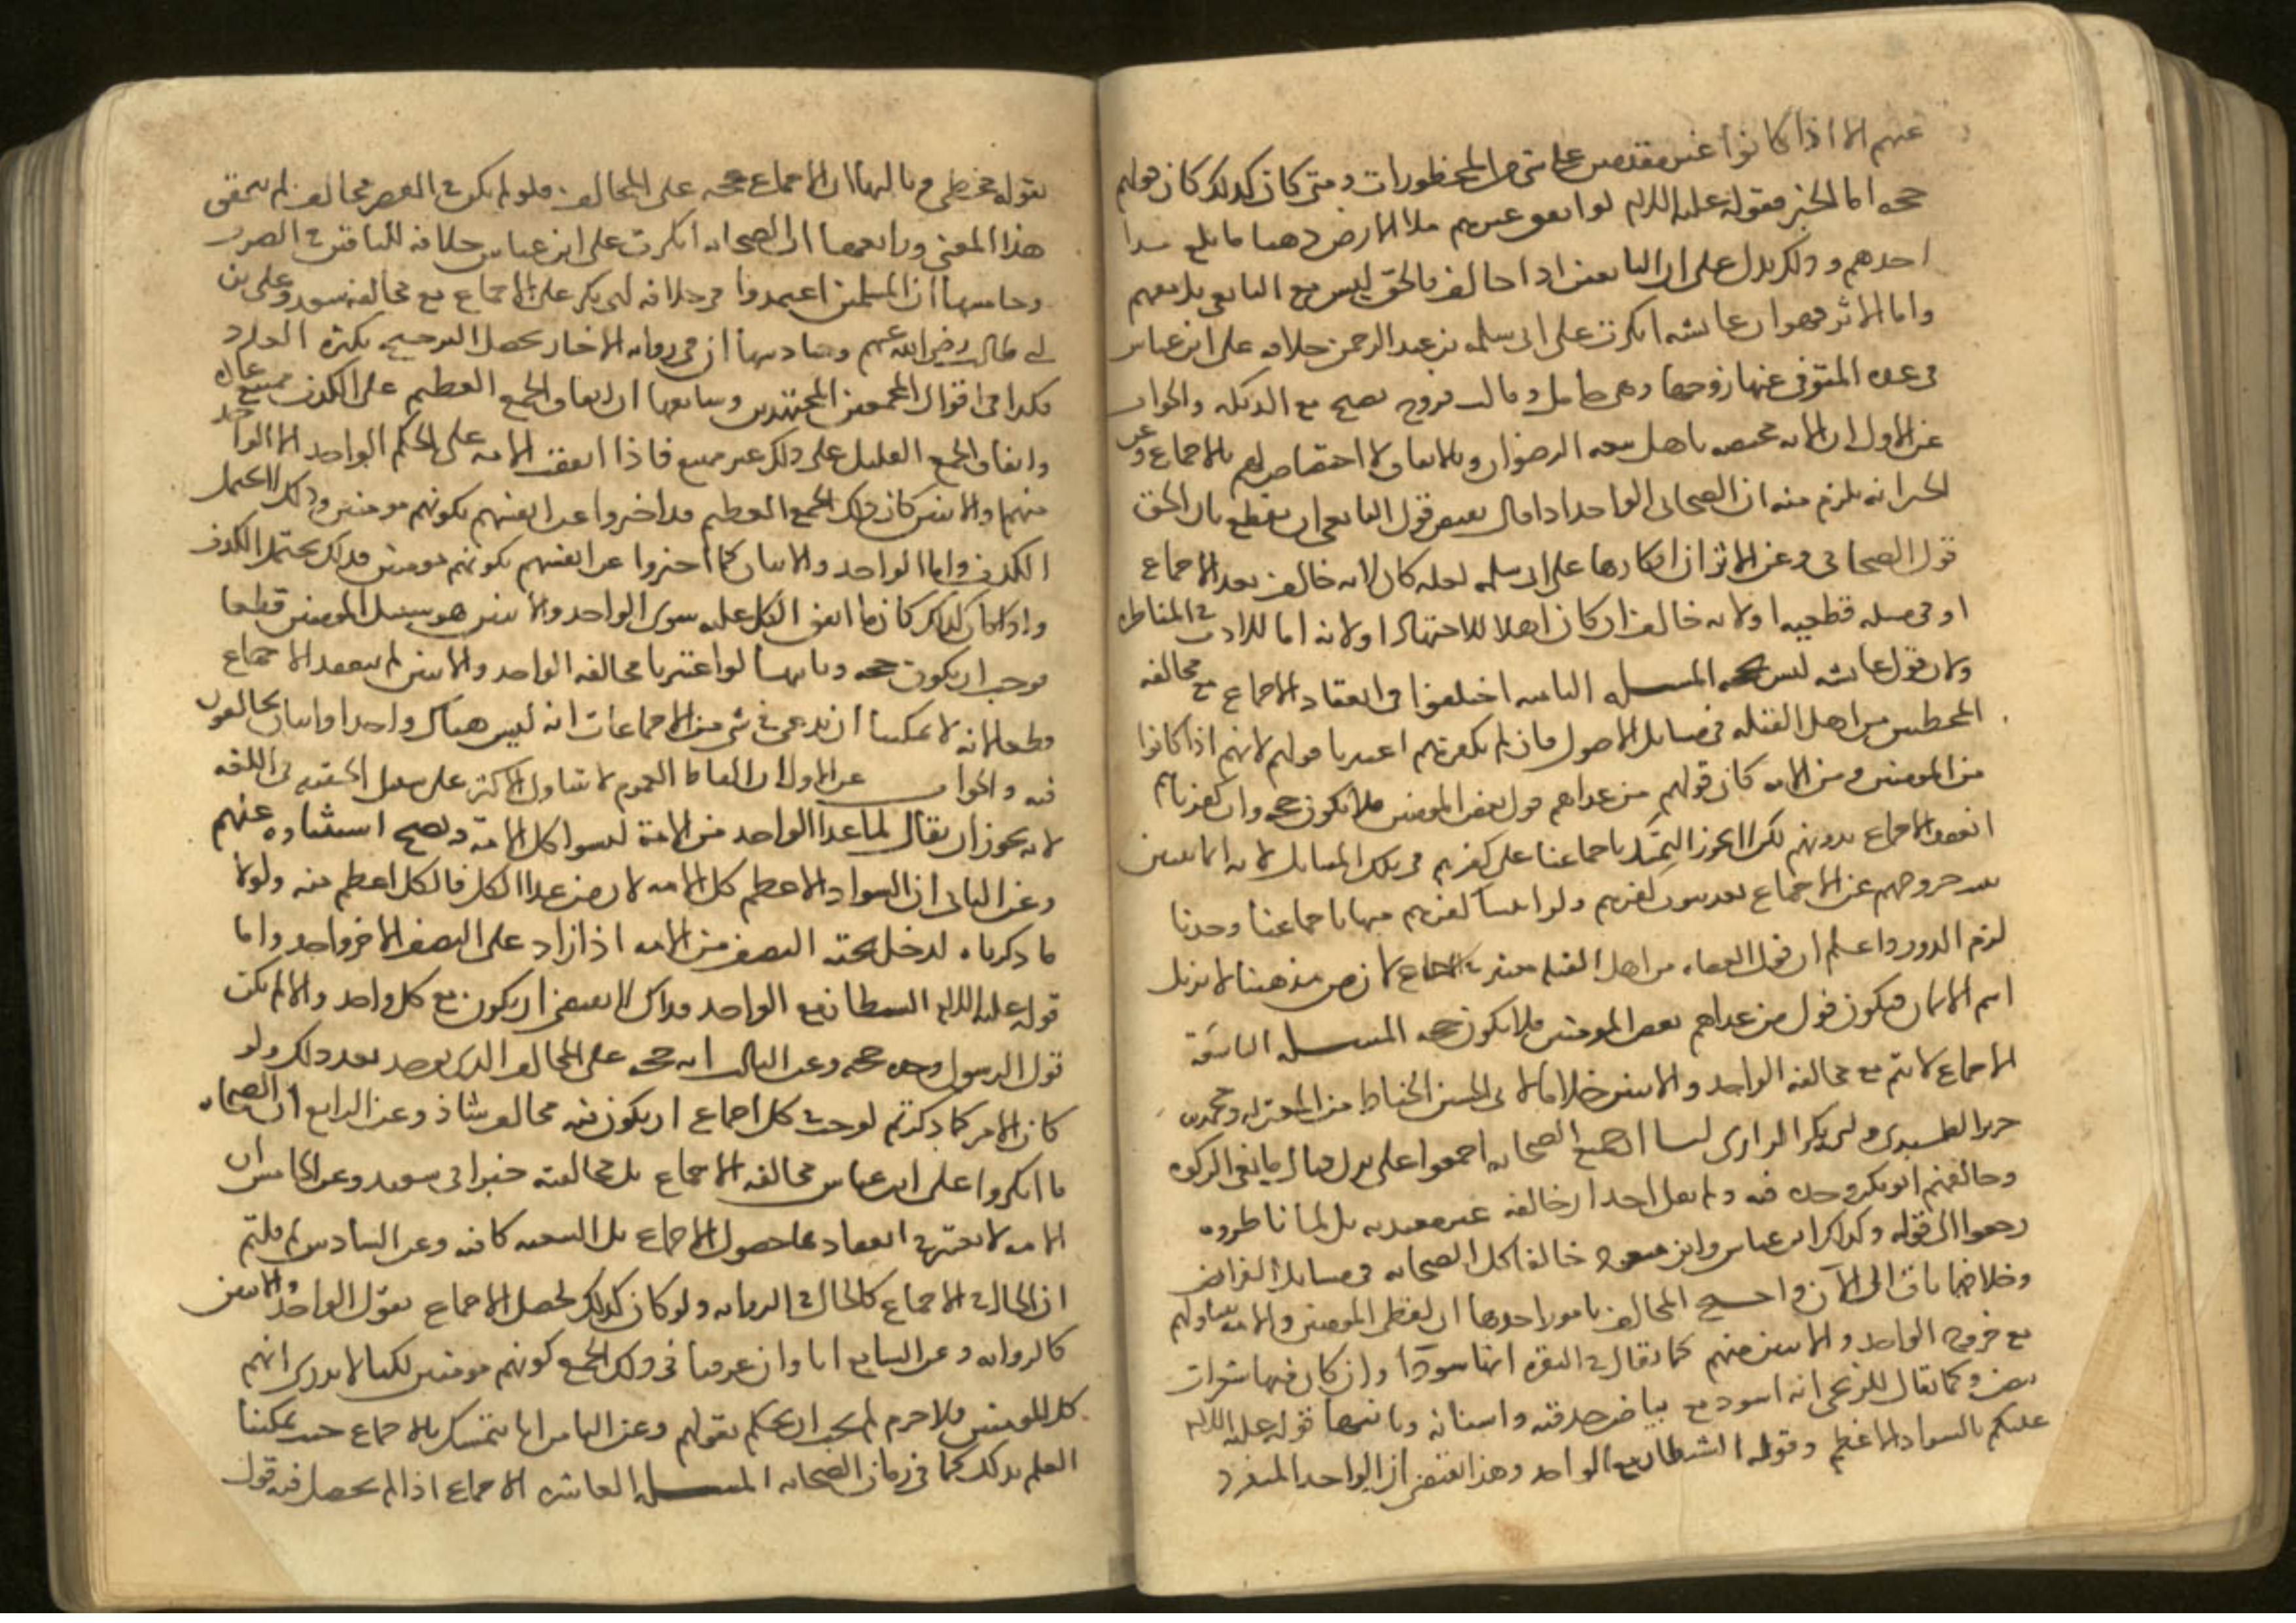 عنهم الا اذا كانوا غير مقدمين على شي من المحظورات ومتى كان كذلك كان قولهم
حجه اما الخبر فقوله عليه السلام لو انفق غيرهم ملا الارض ذهبا ما بلغ مد
احدهم وذلك يدل على ان التابعين اذا خالف فالحق ليس مع التابعي بل معهم
واما الاثر فهو ان عائشه انكرت على ابي سلمه بن عبد الرحمن خلافه على ابن عباس
في عده المتوفى عنها زوجها وهى حامل وقالت فروج يصيح مع الديكه والجواب
عن الاول ان الايه مختصه باهل بيعه الرضوان وبالاتفاق لا اختصاص لهم بالاجماع وعن
الخبر انه يلزم منه ان الصحابي الواحد اذا قال بنقيض قول التابعي ان يقطع بان الحق
قول الصحابي وعن الاثر ان انكارها على ابي سلمه لعله كان لانه خالف بعد الاجماع
او في مسله قطعيه او لانه خالف ان كان اهلا للاجتهاد او لانه اسا للادب في المناظره
ولان قول عائشه ليس بحجه المسله الثامنه اختلفوا في انعقاد الاجماع مع مخالفه
المخطيين من اهل القبله في مسايل الاصول فان لم نكفرهم اعتبرنا قولهم لانهم اذا كانوا
من المومنين ومن الامه كان قولهم من عداهم قول بعض المومنين فلا يكون حجه وان كفرناهم
انعقد الاجماع بدونهم لكن لا يجوز التمسك باجماعنا على كفرهم في تلك المسايل لانه انما يتبين
بعد خروجهم عن الاجماع بعد ثبوت كفرهم ولو اثبتنا كفرهم فيها باجماعنا وحدنا
لزم الدور واعلم ان قول العصاه من اهل القبله معتبر في الاجماع لان من مذهبنا لا يزيل
اسم الايمان فيكون قول من عداهم بعض المومنين فلا يكون حجه المسله التاسعة
الاجماع لا يتم مع مخالفه الواحد والاثنين خلافا لابي الحسين الخياط من المعتزله ومحمد بن
جرير الطبري وابي بكر الرازي لنا ان جميع الصحابه اجمعوا على ترك قتال مانعي الزكوه
وخالفهم ابو بكر وحده فيه ولم يقل احد ان خلافه غير معتد به بل لما ناظروه
رجعوا الى قوله وكذلك ابن عباس وابن مسعود خالفا كل الصحابه في مسايل الفرايض
وخلافهما باق الى الآن واحتج المخالف بامور احدها ان لفظي المومنين والامه يتناولهم
مع خروج الواحد والاثنين منهم كما يقال في البقره انها سودا وان كان فيها شعرات
بيض وكما يقال للزنجي انه اسود مع بياض حدقته واسنانه وثانيها قوله عليه السلام
عليكم بالسواد الاعظم وقوله الشيطان مع الواحد وهذا يقتضي ان الواحد المنفرد
بقوله مخطي وثالثها ان الاجماع حجه على المخالف فلو لم يكن في العصر مخالف لم يتحقق
هذا المعنى ورابعها ان الصحابه انكرت على ابن عباس خلافه للباقين في الصرف
وخامسها ان المسلمين اعتمدوا في خلافه ابي بكر على الاجماع مع مخالفه سعد وعلي بن
ابي طالب رضي الله عنهم وسادسها ان في روايه الاخبار يحصل الترجيح بكثره العدد
فكذا في اقوال المجمعين المجتهدين وسابعها ان اتفاق الجمع العظيم على الكذب ممتنع عاده
واتفاق الجمع القليل على ذلك غير ممتنع فاذا اتفقت الامه على الحكم الواحد الا الواحد
منهم والاثنين كان ذلك الجمع العظيم قد اخبروا عن انفسهم بكونهم مومنين وذلك لا يحتمل
الكذب واما الواحد والاثنان لما اخبروا عن انفسهم بكونهم مومنين فذلك يحتمل الكذب
واذا كان كذلك كان ما اتفق الكل عليه سوى الواحد والاثنين هو سبيل المومنين قطعا
فوجب ان يكون حجه وثامنها لو اعتبرنا مخالفه الواحد والاثنين لم ينعقد الاجماع
قطعا لانه لا يمكننا ان ندعى في شي من الاجماعات انه ليس هناك واحد او اثنان يخالفون
فيه والجواب عن الاول ان الفاظ العموم لا تتناول الاكثر على سبيل الحقيقه في اللغه
لانه يجوز ان يقال لما عدا الواحد من الامة ليسوا كل الامة ويصح استثناوه عنهم
وعن الثاني ان السواد الاعظم كل الامه لان من عدا الكل فالكل اعظم منه ولولا
ما ذكرناه لدخل تحته النصف من الامه اذا زاد على النصف الاخر واحد واما
قوله عليه السلام الشيطان مع الواحد فذاك لا يقتضي ان يكون مع كل واحد والا لم يكن
قول الرسول وحده حجه وعن الثالث انه حجه على المخالف الذي يوجد بعد ذلك ولو
كان الامر كما ذكرتم لوجب في كل اجماع ان يكون فيه مخالف شاذ وعن الرابع ان الصحابه
ما انكروا على ابن عباس مخالفه الاجماع بل مخالفته خبر ابي سعيد وعن الخامس ان
الامامه لا يعتبر في انعقادها حصول الاجماع بل البيعه كافيه وعن السادس لم قلتم
ان الحال في الاجماع كالحال في الروايه ولو كان كذلك لحصل الاجماع بقول الواحد والاثنين
كالروايه وعن السابع انا وان عرفنا في ذلك الجمع كونهم مومنين لكنا لا ندري انهم
كل المومنين فلا جرم لم يجب ان يحكم بقولهم وعن الثامن انا نتمسك بالاجماع حيث يمكننا
العلم بذلك كما في زمان الصحابه المسله العاشره الاجماع اذا لم يحصل فيه قول